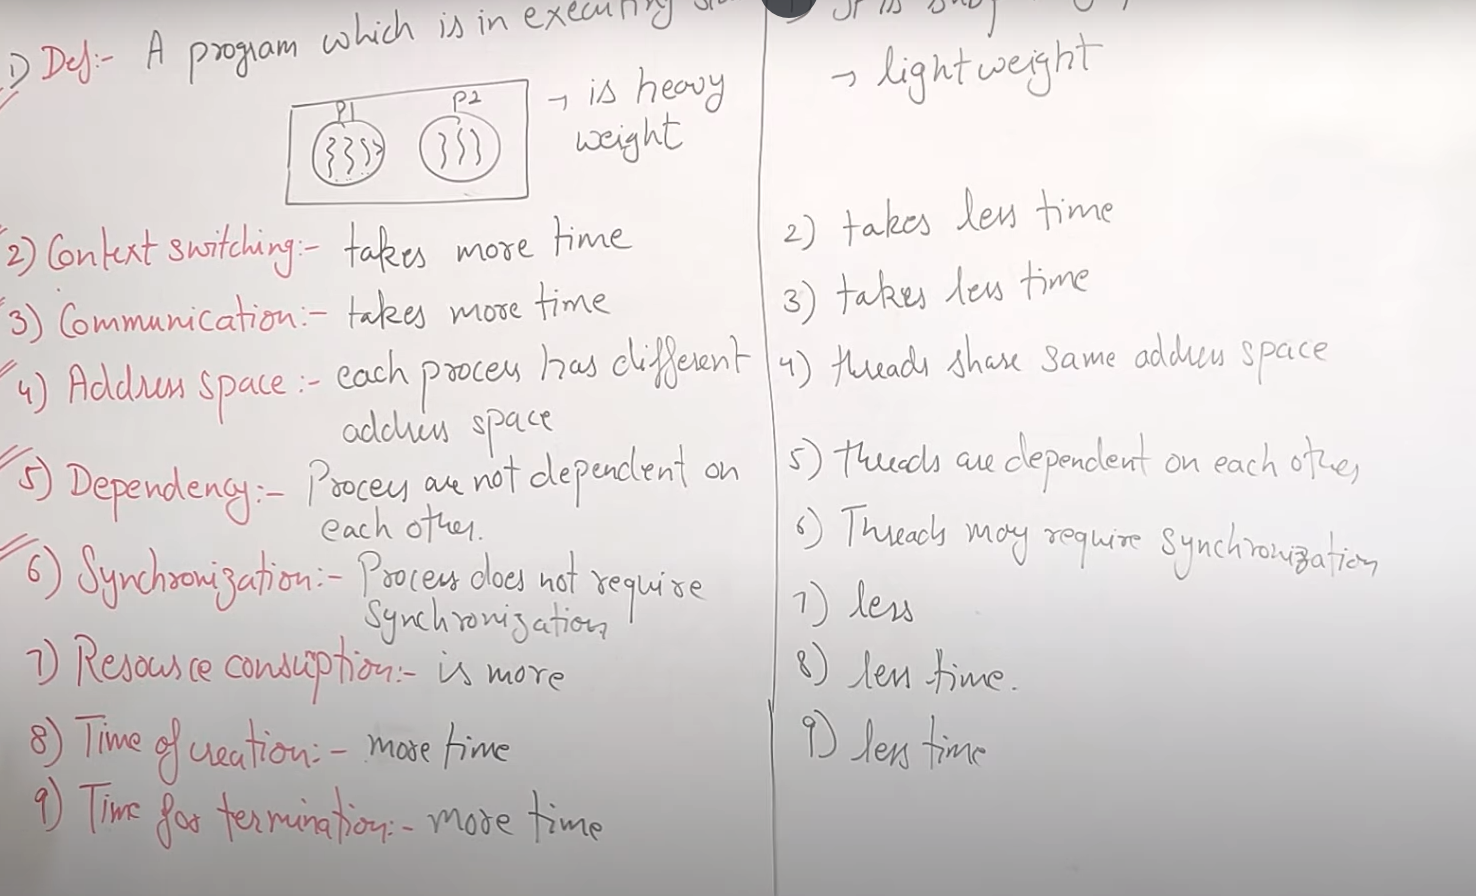 1) Def:- A program which is in executing
P1
P2
→ is heavy
weight
2) Context switching:- takes more time
3) Communication:- takes more time
4) Address space:- each process has different
address space
5) Dependency:- Process are not dependent on
each other.
6) Synchronization:- Process does not require
Synchronization
7) Resource consuption:- is more
8) Time of creation:- more time
9) Time for termination:- more time
→ It is
→ lightweight
2) takes less time
3) takes less time
4) threads share same address space
5) threads are dependent on each other
6) Threads may require synchronization
7) less
8) less time.
9) less time